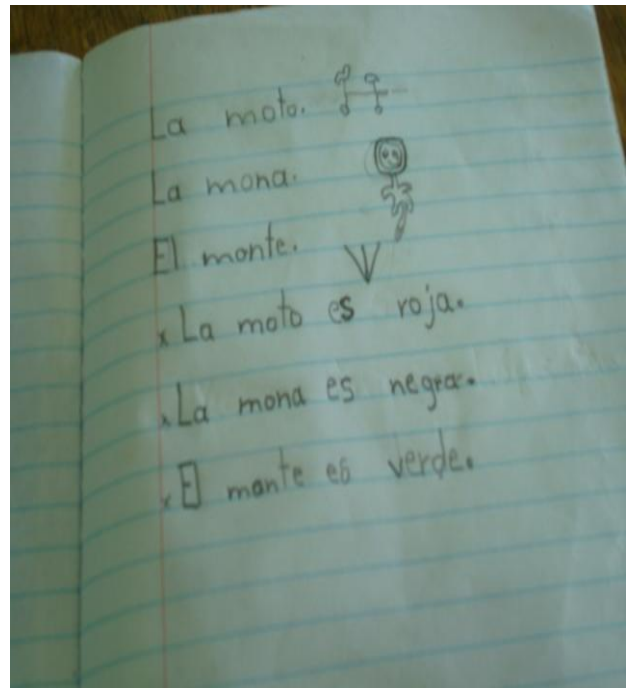 La moto.
La mona.
El monte.
x La moto es roja.
x La mona es negra.
x El monte es verde.